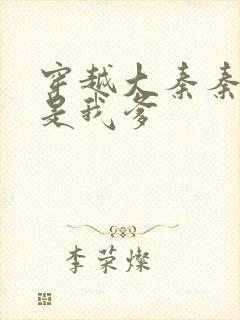 穿越大秦秦
是我爹
李荣灿